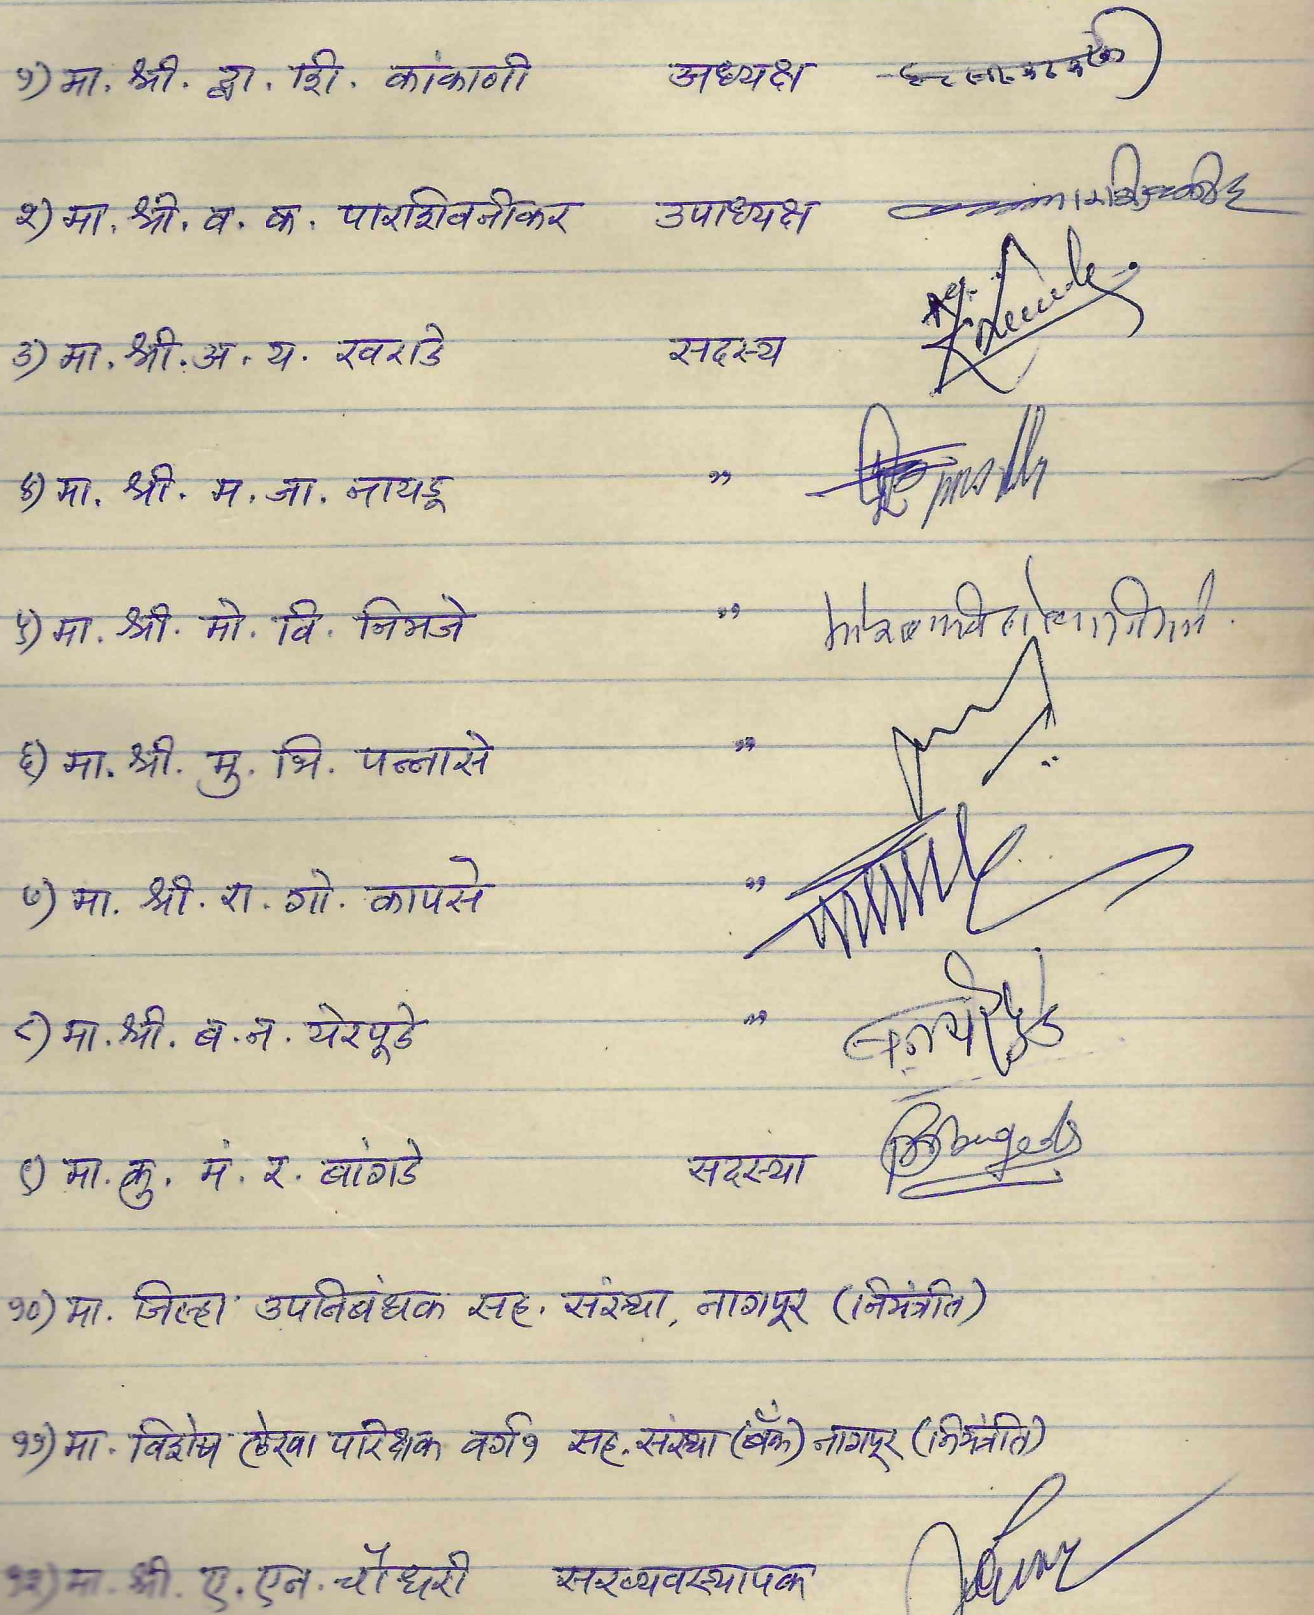 १) मा. श्री. द्वा. शि. कांकाणी अध्यक्ष
२) मा. श्री. व. क. पारशिवनीकर उपाध्यक्ष
३) मा. श्री. अ. य. खराडे सदस्य
४) मा. श्री. म. जा. नायडू "
५) मा. श्री. मो. वि. निमजे "
६) मा. श्री. मु. भि. पन्नासे "
७) मा. श्री. रा. गो. कापसे "
८) मा. श्री. ब. न. येरपूडे "
९) मा. कु. मं. र. बांगडे सदस्या
१०) मा. जिल्हा उपनिबंधक सह. संस्था, नागपूर (निमंत्रीत)
११) मा. विशेष लेखा परिक्षक वर्ग १ सह. संस्था (बँक) नागपूर (निमंत्रीत)
१२) मा. श्री. ए. एन. चौधरी सरव्यवस्थापक